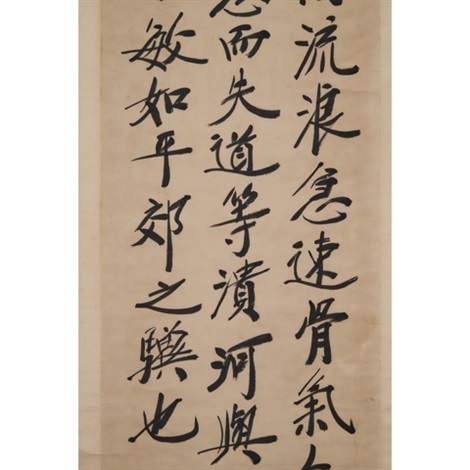 流浪急速骨氣
而失道等潰河與
敏如平郊之驥也